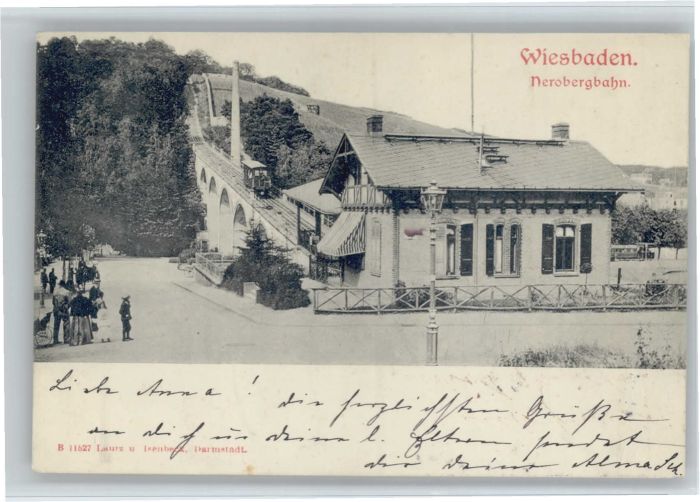 Wiesbaden.
Nerobergbahn.
Liebe Anna! die herzlichsten Grüße
an dich u deine l. Eltern sendet
B 11527 Lautz u Isenbeck, Darmstadt.
dir deine Alma Sch.